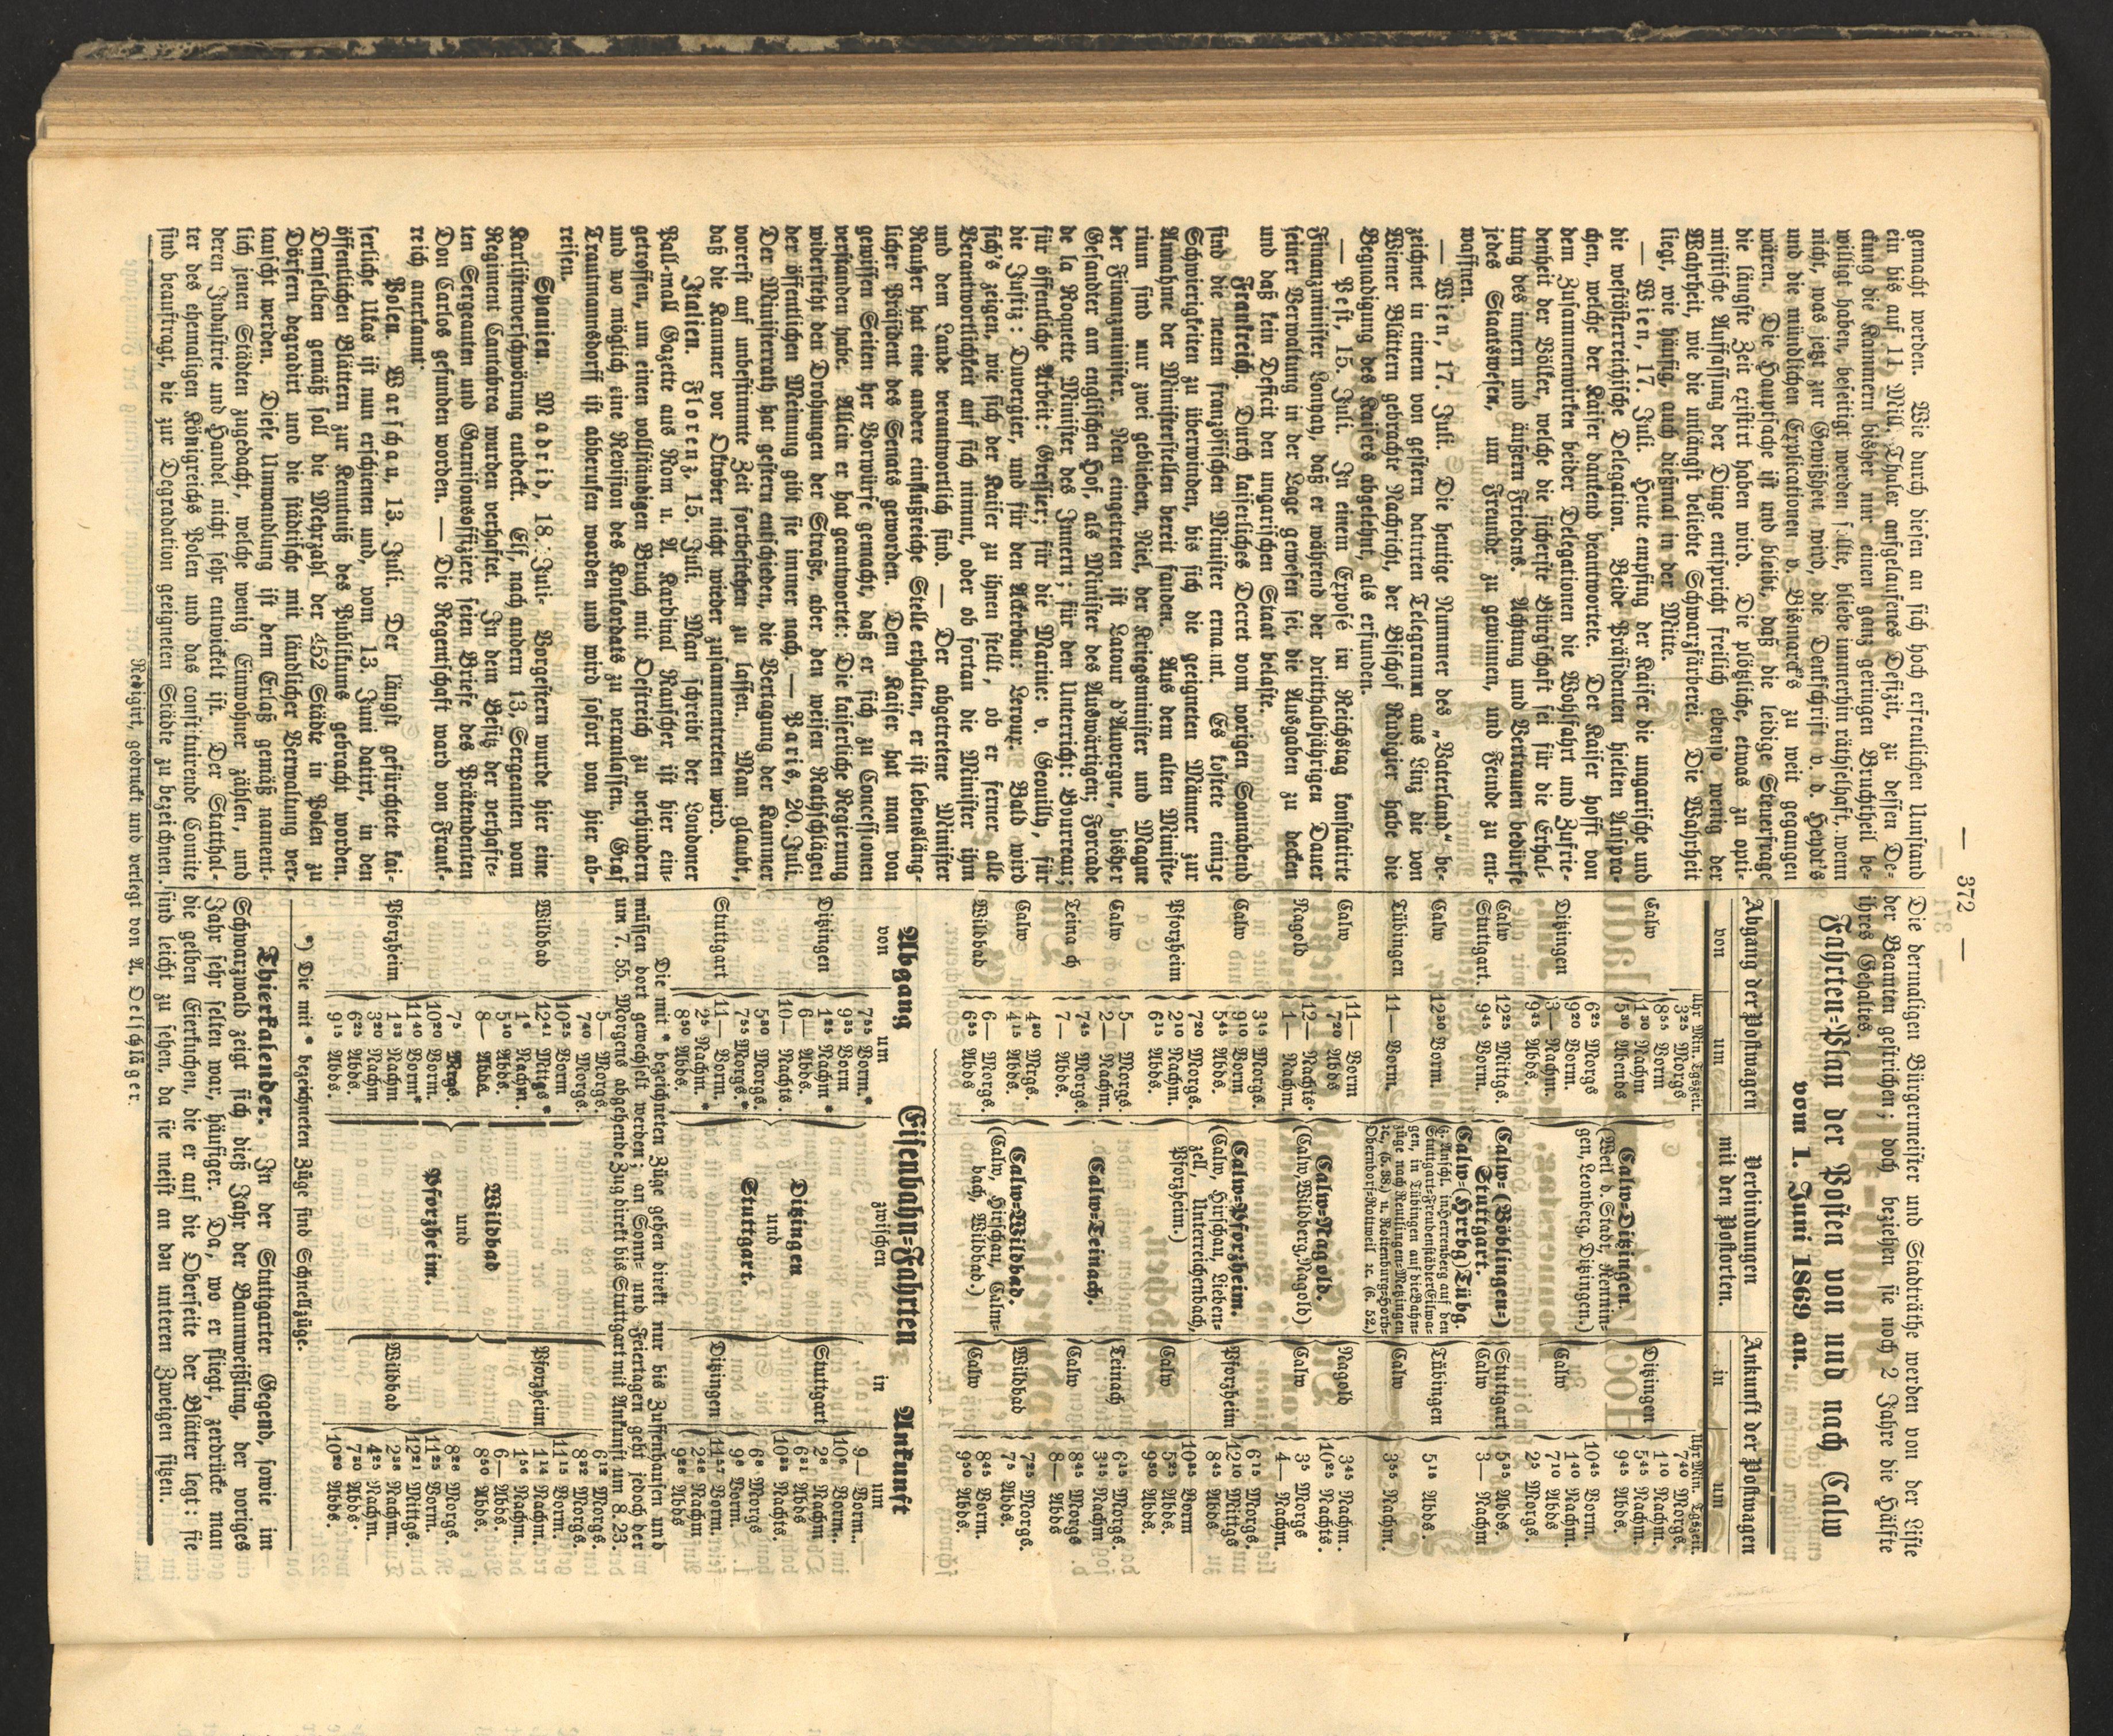 — 372 —
gemacht werden. Wie durch diesen an sich hoch erfreulichen Umstand
ein bis auf 11 Mill. Thaler aufgelaufenes Defizit, zu dessen De-
ckung die Kammern bisher nur einen ganz geringen Bruchtheil be-
willigt haben, beseitigt werden sollte, bliebe immerhin räthselhaft, wenn
nicht, was jetzt zur Gewißheit wird, die Denkschrift v. d. Heydt's
und die mündlichen Explicationen v. Bismarck's zu weit gegangen
wären. Die Hauptsache ist und bleibt, daß die leidige Steuerfrage
die längste Zeit existirt haben wird. Die plötzliche, etwas zu opti-
mistische Auffassung der Dinge entspricht freilich ebenso wenig der
Wahrheit, wie die unlängst beliebte Schwarzfärberei. Die Wahrheit
liegt, wie häufig, auch dießmal in der Mitte.
— Wien, 17. Juli. Heute empfing der Kaiser die ungarische und
die westösterreichische Delegation. Beide Präsidenten hielten Anspra-
chen, welche der Kaiser dankend beantwortete. Der Kaiser hofft von
dem Zusammenwirken beider Delegationen die Wohlfahrt und Zufrie-
denheit der Völker, welche die sicherste Bürgschaft sei für die Erhal-
tung des innern und äußern Friedens. Achtung und Vertrauen bedürfe
jedes Staatswesen, um Freunde zu gewinnen, und Feinde zu ent-
waffnen.
— Wien, 17. Juli. Die heutige Nummer des „Vaterland" be-
zeichnet in einem von gestern datirten Telegramm aus Linz die von
Wiener Blättern gebrachte Nachricht, der Bischof Rudigier habe die
Begnadigung des Kaisers abgelehnt, als erfunden.
— Pest, 15. Juli. In einem Exposé im Reichstag konstatirte
Finanzminister Lonyay, daß er während der dritthalbjährigen Dauer
seiner Verwaltung in der Lage gewesen sei, die Ausgaben zu decken
und daß kein Deficit den ungarischen Staat belaste.
Frankreich. Durch kaiserliches Decret vom vorigen Sonnabend
sind die neuen französischen Minister ernannt. Es kostete einige
Schwierigkeiten zu überwinden, bis sich die geeigneten Männer zur
Annahme der Ministerstellen bereit fanden. Aus dem alten Ministe-
rium sind nur zwei geblieben, Niel, der Kriegsminister und Magne
der Finanzminister. Neu eingetreten ist Latour d'Auvergne, bisher
Gesandter am englischen Hof, als Minister des Auswärtigen; Forcade
de la Roquette Minister des Innern; für den Unterricht: Bourreau;
für öffentliche Arbeit: Gressier; für die Marine: v. Genouilly, für
die Justiz: Duvergier, und für den Ackerbau: Leroux. Bald wird
sich's zeigen, wie sich der Kaiser zu ihnen stellt, ob er ferner alle
Verantwortlichkeit auf sich nimmt, oder ob fortan die Minister ihm
und dem Lande verantwortlich sind. — Der abgetretene Minister
Rouher hat eine andere einflußreiche Stelle erhalten, er ist lebensläng-
licher Präsident des Senats geworden. Dem Kaiser hat man von
gewissen Seiten her Vorwürfe gemacht, daß er sich zu Concessionen
verstanden habe. Allein er hat geantwortet: Die kaiserliche Regierung
widersteht den Drohungen der Straße, aber den weisen Rathschlägen
der öffentlichen Meinung gibt sie immer nach. — Paris, 20. Juli.
Der Ministerrath hat gestern entschieden, die Vertagung der Kammer
vorerst auf unbestimmte Zeit fortbestehen zu lassen. Man glaubt,
daß die Kammer vor Oktober nicht wieder zusammentreten wird.
Italien. Florenz, 15. Juli. Man schreibt der Londoner
Pall-mall Gazette aus Rom u. A. Kardinal Rauscher ist hier ein-
getroffen, um einen vollständigen Bruch mit Oestreich zu verhindern
und wo möglich eine Revision des Konkordats zu veranlassen. Graf
Trautmannsdorff ist abberufen worden und wird sofort von hier ab-
reisen.
Spanien. Madrid, 18. Juli. Vorgestern wurde hier eine
Karlistenverschwörung entdeckt. Elf, nach andern 13, Sergeanten vom
Regiment Cantabrea wurden verhaftet. In dem Besitz der verhafte-
ten Sergeanten und Garnisonsoffiziere seien Briefe des Prätendenten
Don Carlos gefunden worden. — Die Regentschaft ward von Frank-
reich anerkannt.
Polen. Warschau, 13. Juli. Der längst gefürchtete kai-
serliche Ukas ist nun erschienen und, vom 13. Juni datirt, in den
öffentlichen Blättern zur Kenntniß des Publikums gebracht worden.
Demselben gemäß soll die Mehrzahl der 452 Städte in Polen zu
Dörfern degradirt und die städtische mit ländlicher Verwaltung ver-
tauscht werden. Diese Umwandlung ist dem Erlaß gemäß nament-
lich jenen Städten zugedacht, welche wenig Einwohner zählen, und
deren Industrie und Handel nicht sehr entwickelt ist. Der Statthal-
ter des ehemaligen Königreichs Polen und das constituirende Comite
sind beauftragt, die zur Degradation geeigneten Städte zu bezeichnen.
Die dermaligen Bürgermeister und Stadträthe werden von der Liste
der Beamten gestrichen; doch beziehen sie noch 2 Jahre die Hälfte
ihres Gehaltes.
Fahrten-Plan der Posten von und nach Calw
vom 1. Juni 1869 an.
Abgang der Postwagen Verbindungen mit den Postorten. Ankunft der Postwagen
von um in um
Uhr Min. Tgszeit. Uhr Min. Tgszeit.
Calw 3 25 Morgs. Calw-Ditzingen. Ditzingen 7 40 Morgs.
8 55 Vorm (Weil d. Stadt, Rennin- 1 10 Nachm.
1 30 Nachm. gen, Leonberg, Ditzingen.) 5 45 Nachm.
5 30 Abends 9 45 Abds.
Ditzingen 6 25 Morgs Calw 10 45 Vorm.
9 20 Vorm. 1 40 Nachm.
3 — Nachm. 7 10 Abds
9 45 Abds. 2 5 Morgs.
Calw 12 25 Mittgs. Calw-(Böblingen-) Stuttgart 5 35 Abds.
Stuttgart. 9 45 Vorm. Stuttgart. Calw 3 — Nachm
Calw 12 30 Vorm. Calw-(Hrrbg) Tübg. Tübingen 5 15 Abds.
(z. Anschl. in Herrenberg auf den
Stuttgart-Freudenstädter Eilwa-
gen, in Tübingen auf die Bahn-
züge nach Reutlingen-Metzingen
Tübingen 11 — Vorm. ꝛc. (5. 38.) u. Rottenburg-Horb- Calw 3 55 Nachm.
Oberndorf-Rottweil ꝛc. (6. 52.)
Calw 11 — Vorm Calw-Nagold. Nagold 3 45 Nachm.
7 20 Abds (Calw, Wildberg, Nagold) 10 25 Nachts.
Nagold 12 — Nachts. Calw 3 5 Morgs
1 — Nachm. 4 — Nachm.
Calw 3 15 Morgs. Calw-Pforzheim. Pforzheim 6 15 Morgs.
9 10 Vorm. (Calw, Hirschau, Lieben- 12 10 Mittgs
5 45 Abds. zell, Unterreichenbach, 8 45 Abds.
Pforzheim 7 20 Morgs Pforzheim.) Calw 10 35 Vorm
2 10 Nachm. 5 25 Abds.
6 15 Abds. 9 30 Abds.
Calw 5 — Morgs Calw-Teinach. Teinach 6 15 Morgs.
2 — Nachm. 3 15 Nachm
Teinach 7 45 Morgs. Calw 8 35 Morgs
7 — Abds. 8 — Abds.
Calw 4 30 Mrgs. Calw-Wildbad. Wildbad 7 25 Morgs.
4 15 Abds (Calw, Hirschau, Calm- 7 5 Abds.
Wildbad 6 — Morgs. bach, Wildbad.) Calw 8 45 Vorm.
6 55 Abds. 9 30 Abds.
Abgang Eisenbahn-Fahrten Ankunft
von um zwischen in um
Ditzingen 7 55 Vorm.* Ditzingen Stuttgart 9 — Vorm.
9 35 Vorm. und 10 5 Vorm.
1 25 Nachm * Stuttgart. 2 8 Nachm.
6 — Abds. 6 31 Abds
10 — Nachts. 10 33 Nachts.
Stuttgart 5 30 Morgs. Ditzingen 6 8 Morgs
7 55 Morgs.* 9 8 Vorm.
11 — Vorm. 11 57 Vorm.
2 5 Nachm. * 2 48 Nachm
8 50 Abds. 9 28 Abds
Die mit * bezeichneten Züge gehen direkt nur bis Zuffenhausen und
müssen dort gewechselt werden; an Sonn- und Feiertagen geht jedoch der
um 7. 55. Morgens abgehende Zug direkt bis Stuttgart mit Ankunft um 8. 23.
Wildbad 5 — Morgs. Wildbad Pforzheim 6 12 Morgs.
7 40 Morgs. und 8 32 Morgs.
10 25 Vorm Pforzheim. 11 15 Vorm.
12 41 Mittgs * 1 14 Nachm.
1 5 Nachm. 1 56 Nachm.
5 30 Abds. 6 — Abds.
8 — Abds. 8 50 Abds.
Pforzheim 7 5 Mrgs. Wildbad 8 28 Morgs.
10 20 Vorm. 11 25 Vorm.
11 40 Vorm* 12 21 Mittgs.
1 33 Nachm 2 38 Nachm.
3 20 Nachm 4 25 Nachm.
6 25 Abds. 7 30 Abds.
9 15 Abds. 10 20 Abds.
*) Die mit * bezeichneten Züge sind Schnellzüge.
Thierkalender. In der Stuttgarter Gegend, sowie im
Schwarzwald zeigt sich dieß Jahr der Baumweißling, der voriges
Jahr sehr selten war, häufiger. Da, wo er fliegt, zerdrücke man
die gelben Eierkuchen, die er auf die Oberseite der Blätter legt: sie
sind leicht zu sehen, da sie meist an den unteren Zweigen sitzen.
Redigirt, gedruckt und verlegt von A. Oelschläger.